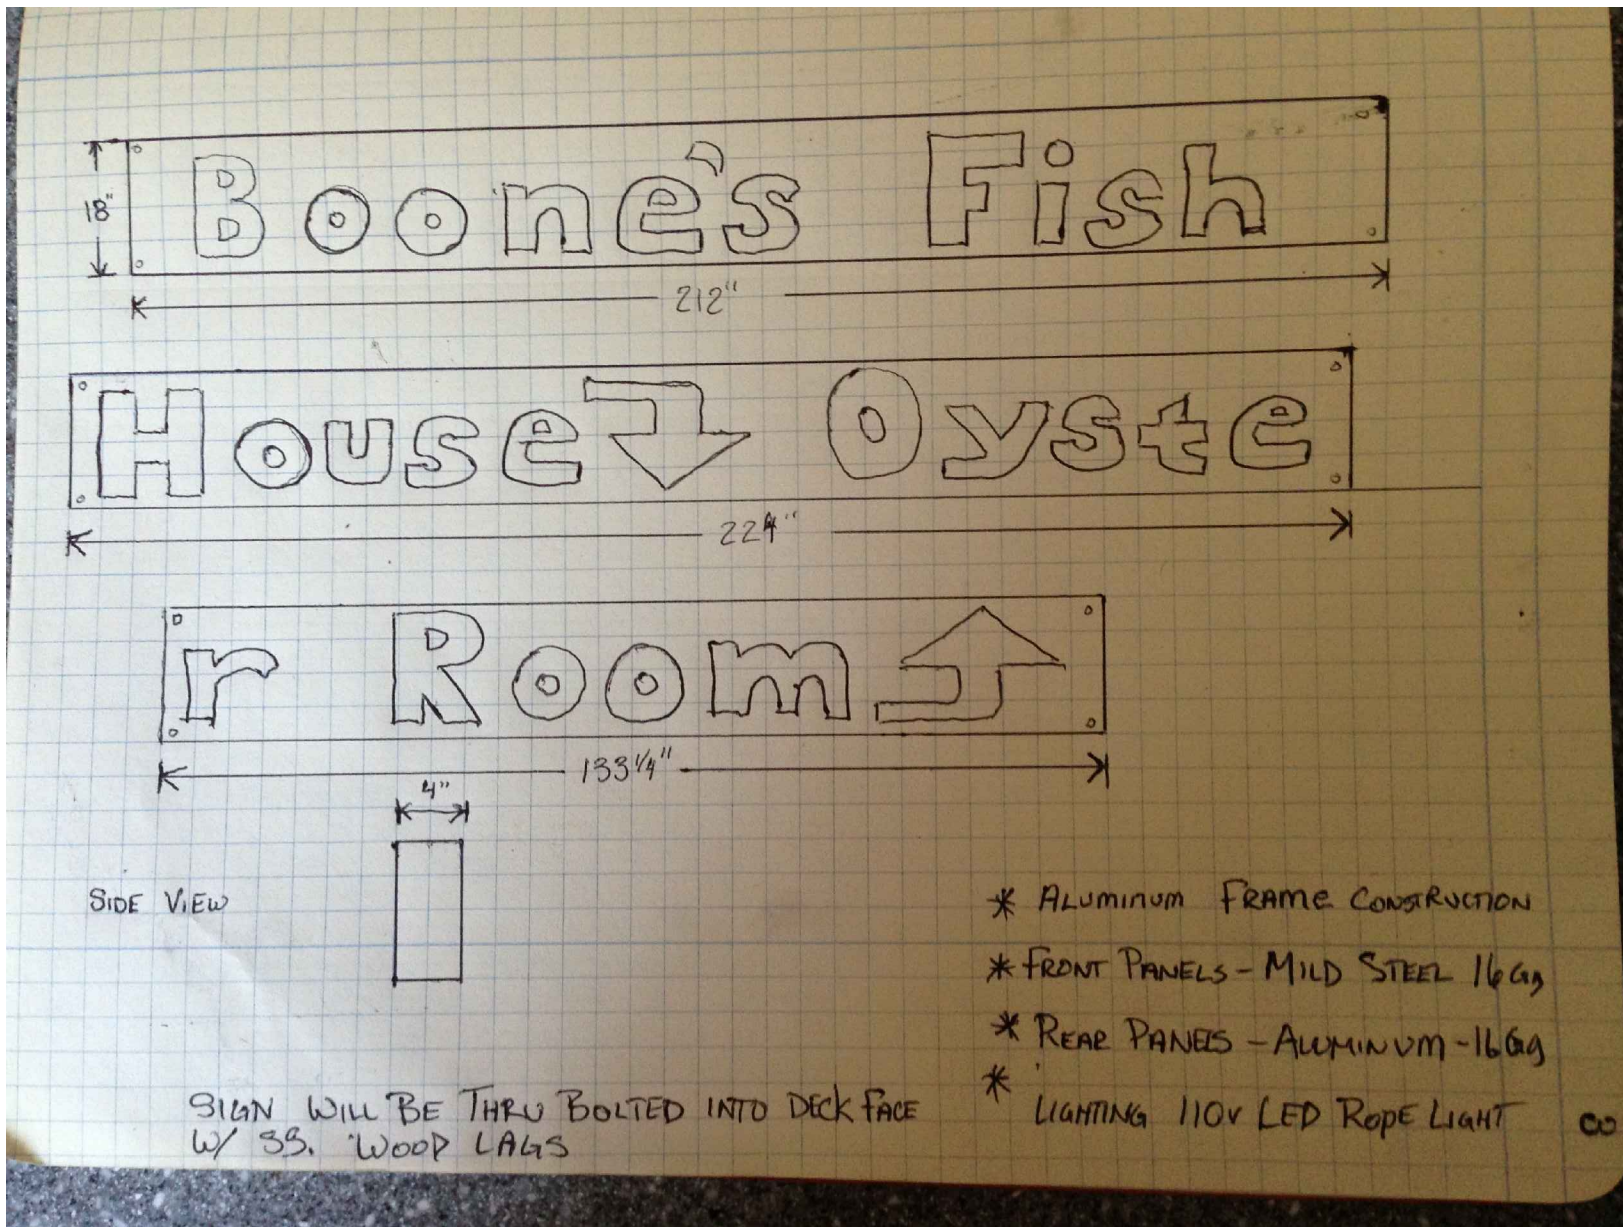 Boone's Fish
18"
212"
House Oyste
224"
r Room
133 1/4"
4"
SIDE VIEW
* ALUMINUM FRAME CONSTRUCTION
* FRONT PANELS - MILD STEEL 16Gg
* REAR PANELS - ALUMINUM - 16Gg
* LIGHTING 110V LED ROPE LIGHT
SIGN WILL BE THRU BOLTED INTO DECK FACE
W/ SS. WOOD LAGS